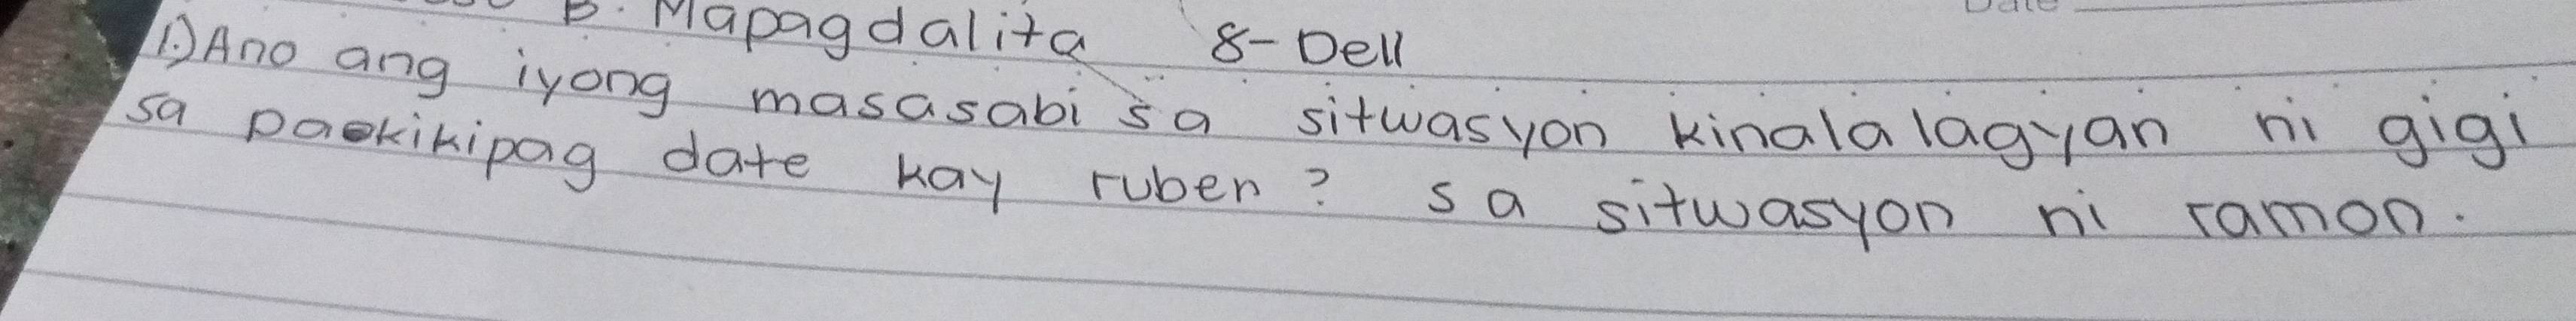 B. Mapagdalita 8-Dell
Date
1.) Ano ang iyong masasabi sa sitwasyon kinalalagyan ni gigi
sa paekikipag date kay ruben? sa sitwasyon ni ramon.